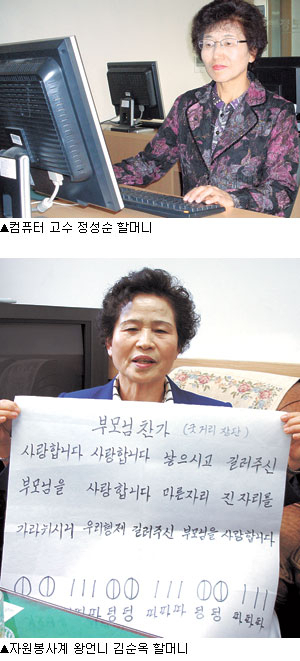 ▲컴퓨터 고수 정성순 할머니
부모님 찬가 (굿거리 장단)
사랑합니다 사랑합니다 낳으시고 길러주신
부모님을 사랑합니다 마른자리 진자리를
가라하시며 우리형제 길러주신 부모님을 사랑합니다
파파 덩 덩 파파파 덩 덩 파파파
▲자원봉사계 왕언니 김순옥 할머니